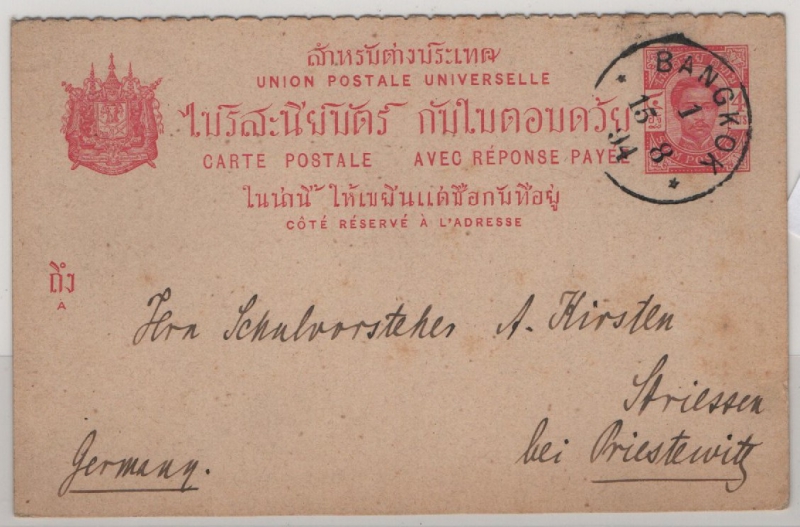 สำหรับต่างประเทศ
UNION POSTALE UNIVERSELLE
ไปรสะนียบัตร์ กับใบตอบด้วย
CARTE POSTALE AVEC RÉPONSE PAYÉE
ในน่านี้ ให้เขียนแต่ชื่อกับที่อยู่
CÔTÉ RÉSERVÉ À L'ADRESSE
BANGKOK
1
15 8
94
ถึง
A
Herrn Schulvorsteher A. Kirsten
Striessen
bei Priestewitz
Germany.